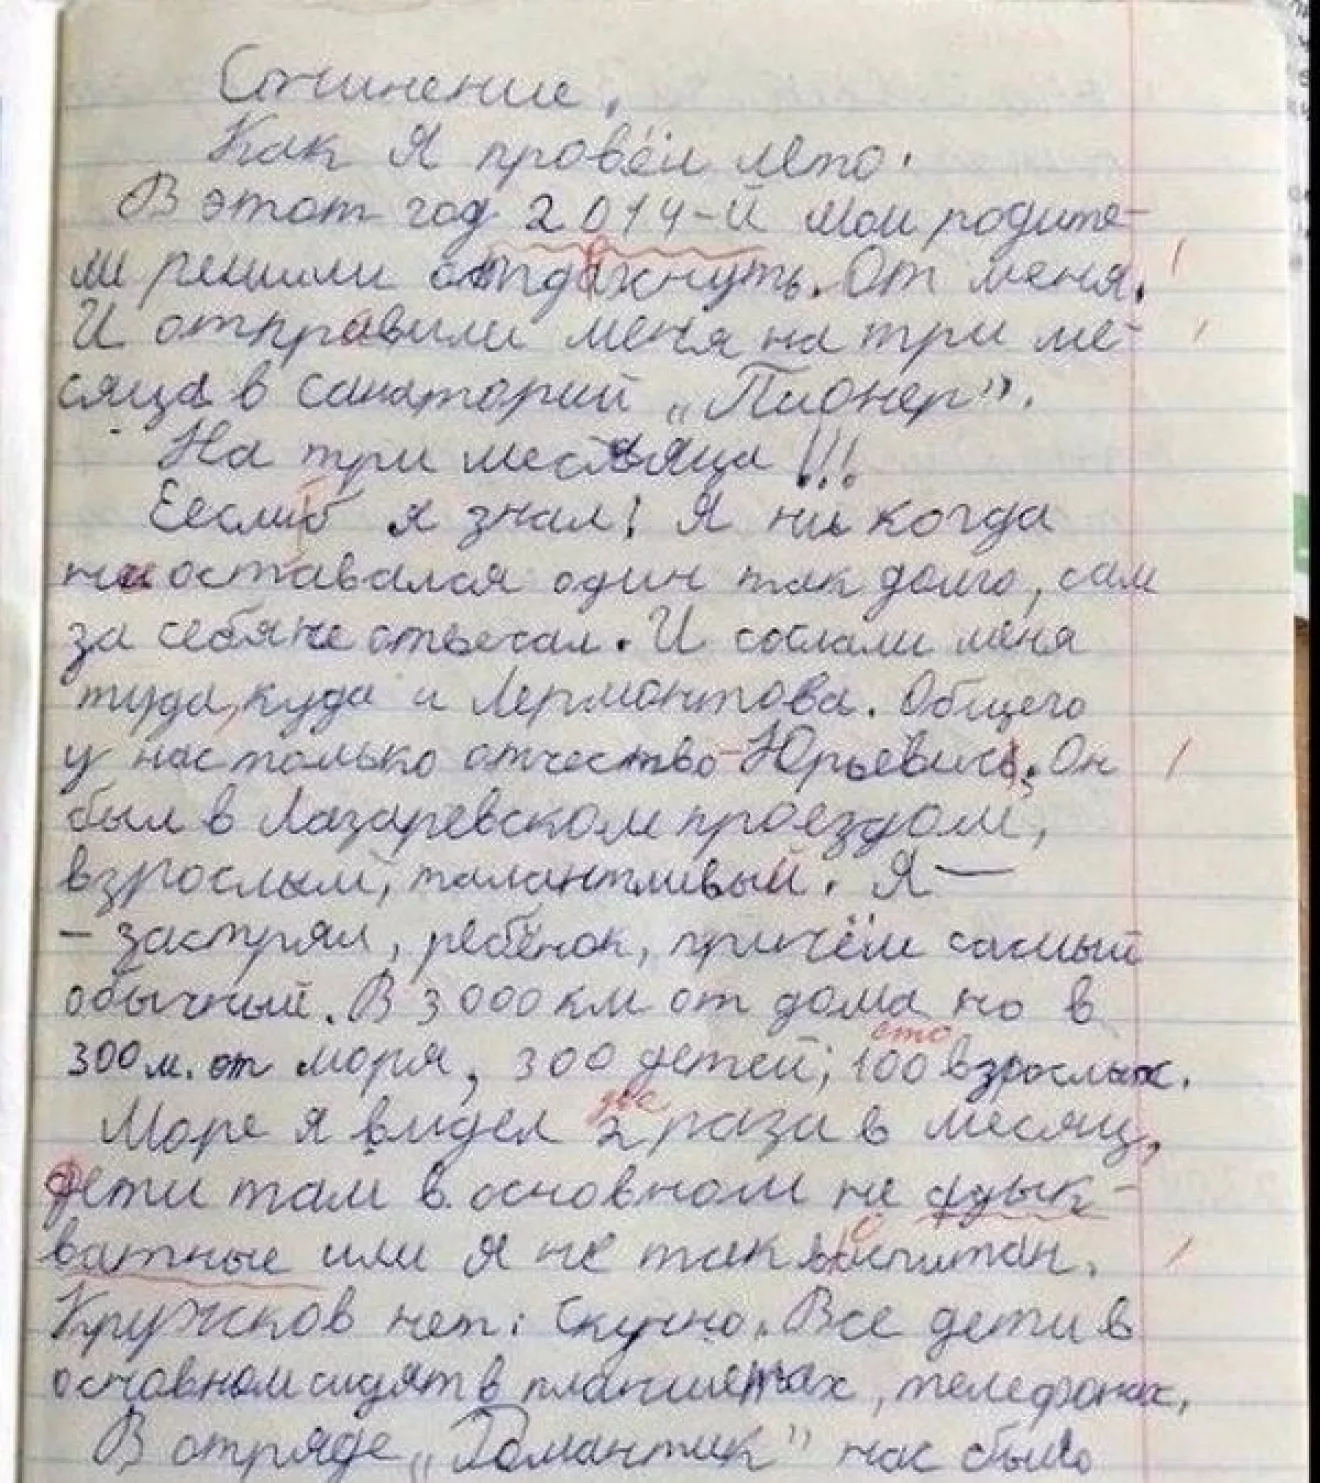 Сочинение.
Как Я провёл лето.
В этот год 2014-й мои родите-
ли решили отдохнуть. От меня.
И отправили меня на три ме-
сяца в санаторий „Пионер".
На три месяца!!!
Еслиб я знал! Я ни когда
не оставался один так долго, сам
за себя не отвечал. И сослали меня
туда, куда и Лермонтова. Общего
у нас только отчество - Юрьевич. Он
был в Лазаревском проездом,
взрослым, талантливый. Я —
- застрял, ребёнок, причём самый
обычный. В 3000 км от дома но в
сто
300 м. от моря, 300 детей; 100 взрослых.
две
Море я видел 2 раза в месяц,
дети там в основном не адык-
ватные или я не так воспитан.
Кружков нет. Скучно. Все дети в
основном сидят в планшетах, телефонах,
В отряде „Романтик" нас было